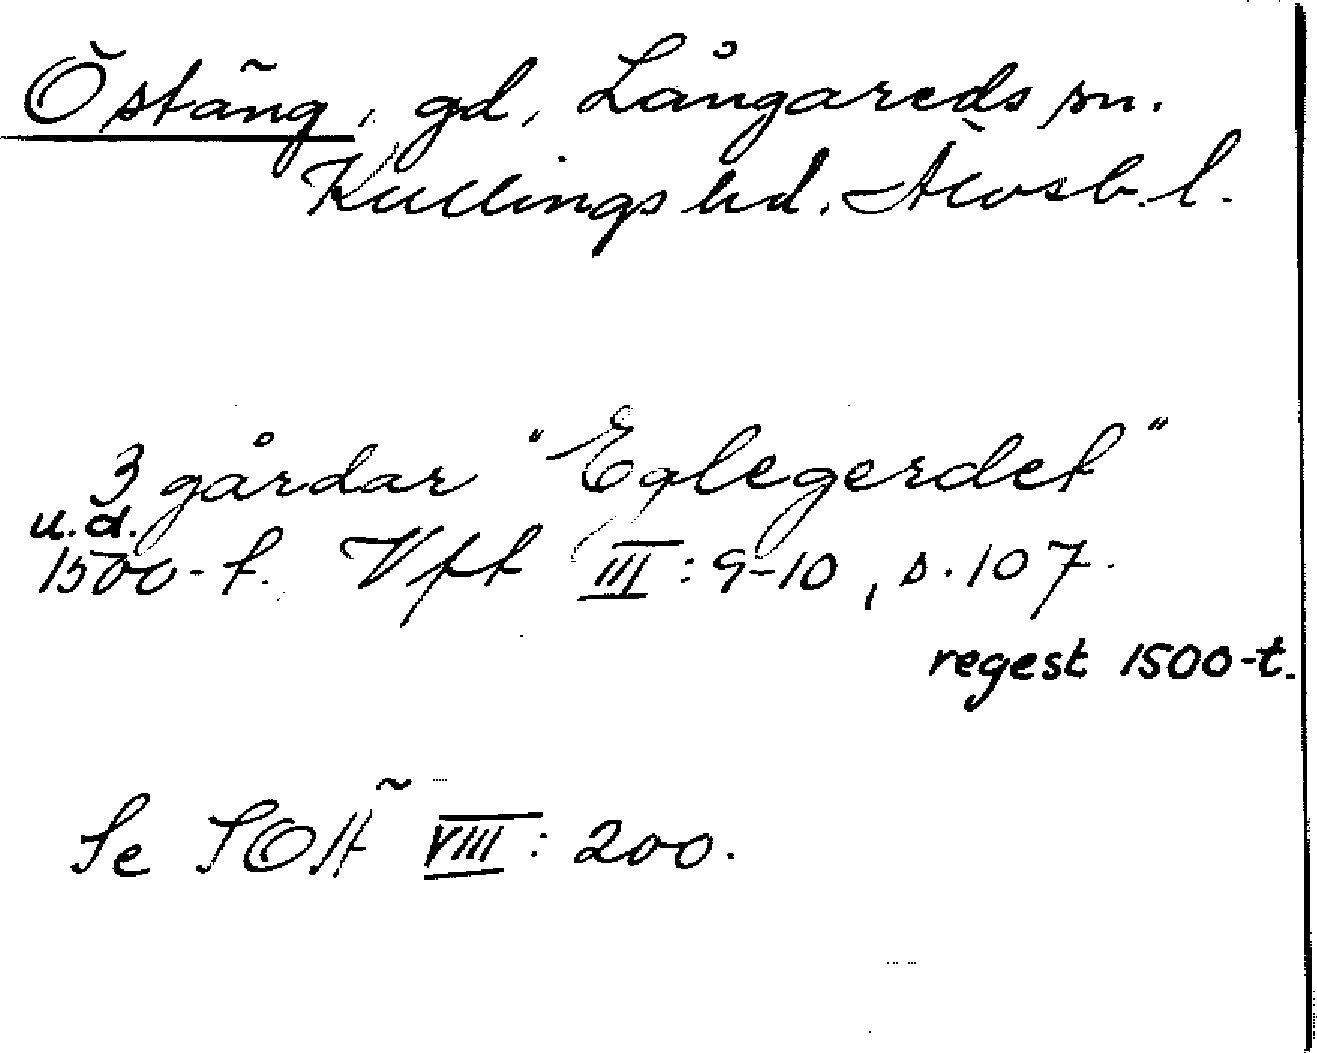 Östäng, gd, Långareds sn.
Kullings hd. Älvsb. l.
3 gårdar "Eglegerdet"
u.d.
1500-t. Vft III: 9-10, s. 107.
regest 1500-t.
Se SOÄ VIII: 200.